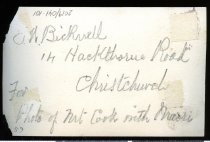 W. Bicknell
14 Hackthorne Road
Christchurch
For
Photo of Mt Cook with Maori